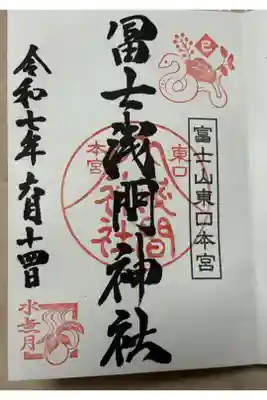 巳
富士山東口本宮
冨士浅間神社
東口
本宮
令和七年六月十四日
水無月